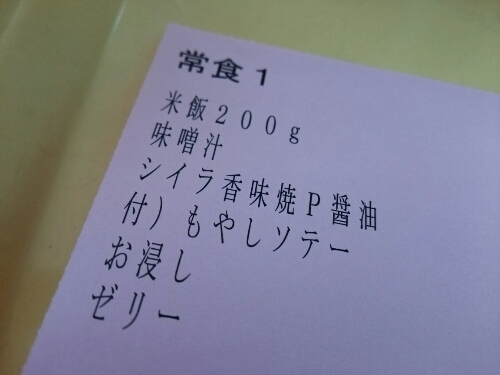 常食1
米飯200g
味噌汁
シイラ香味焼P醤油
付）もやしソテー
お浸し
ゼリー